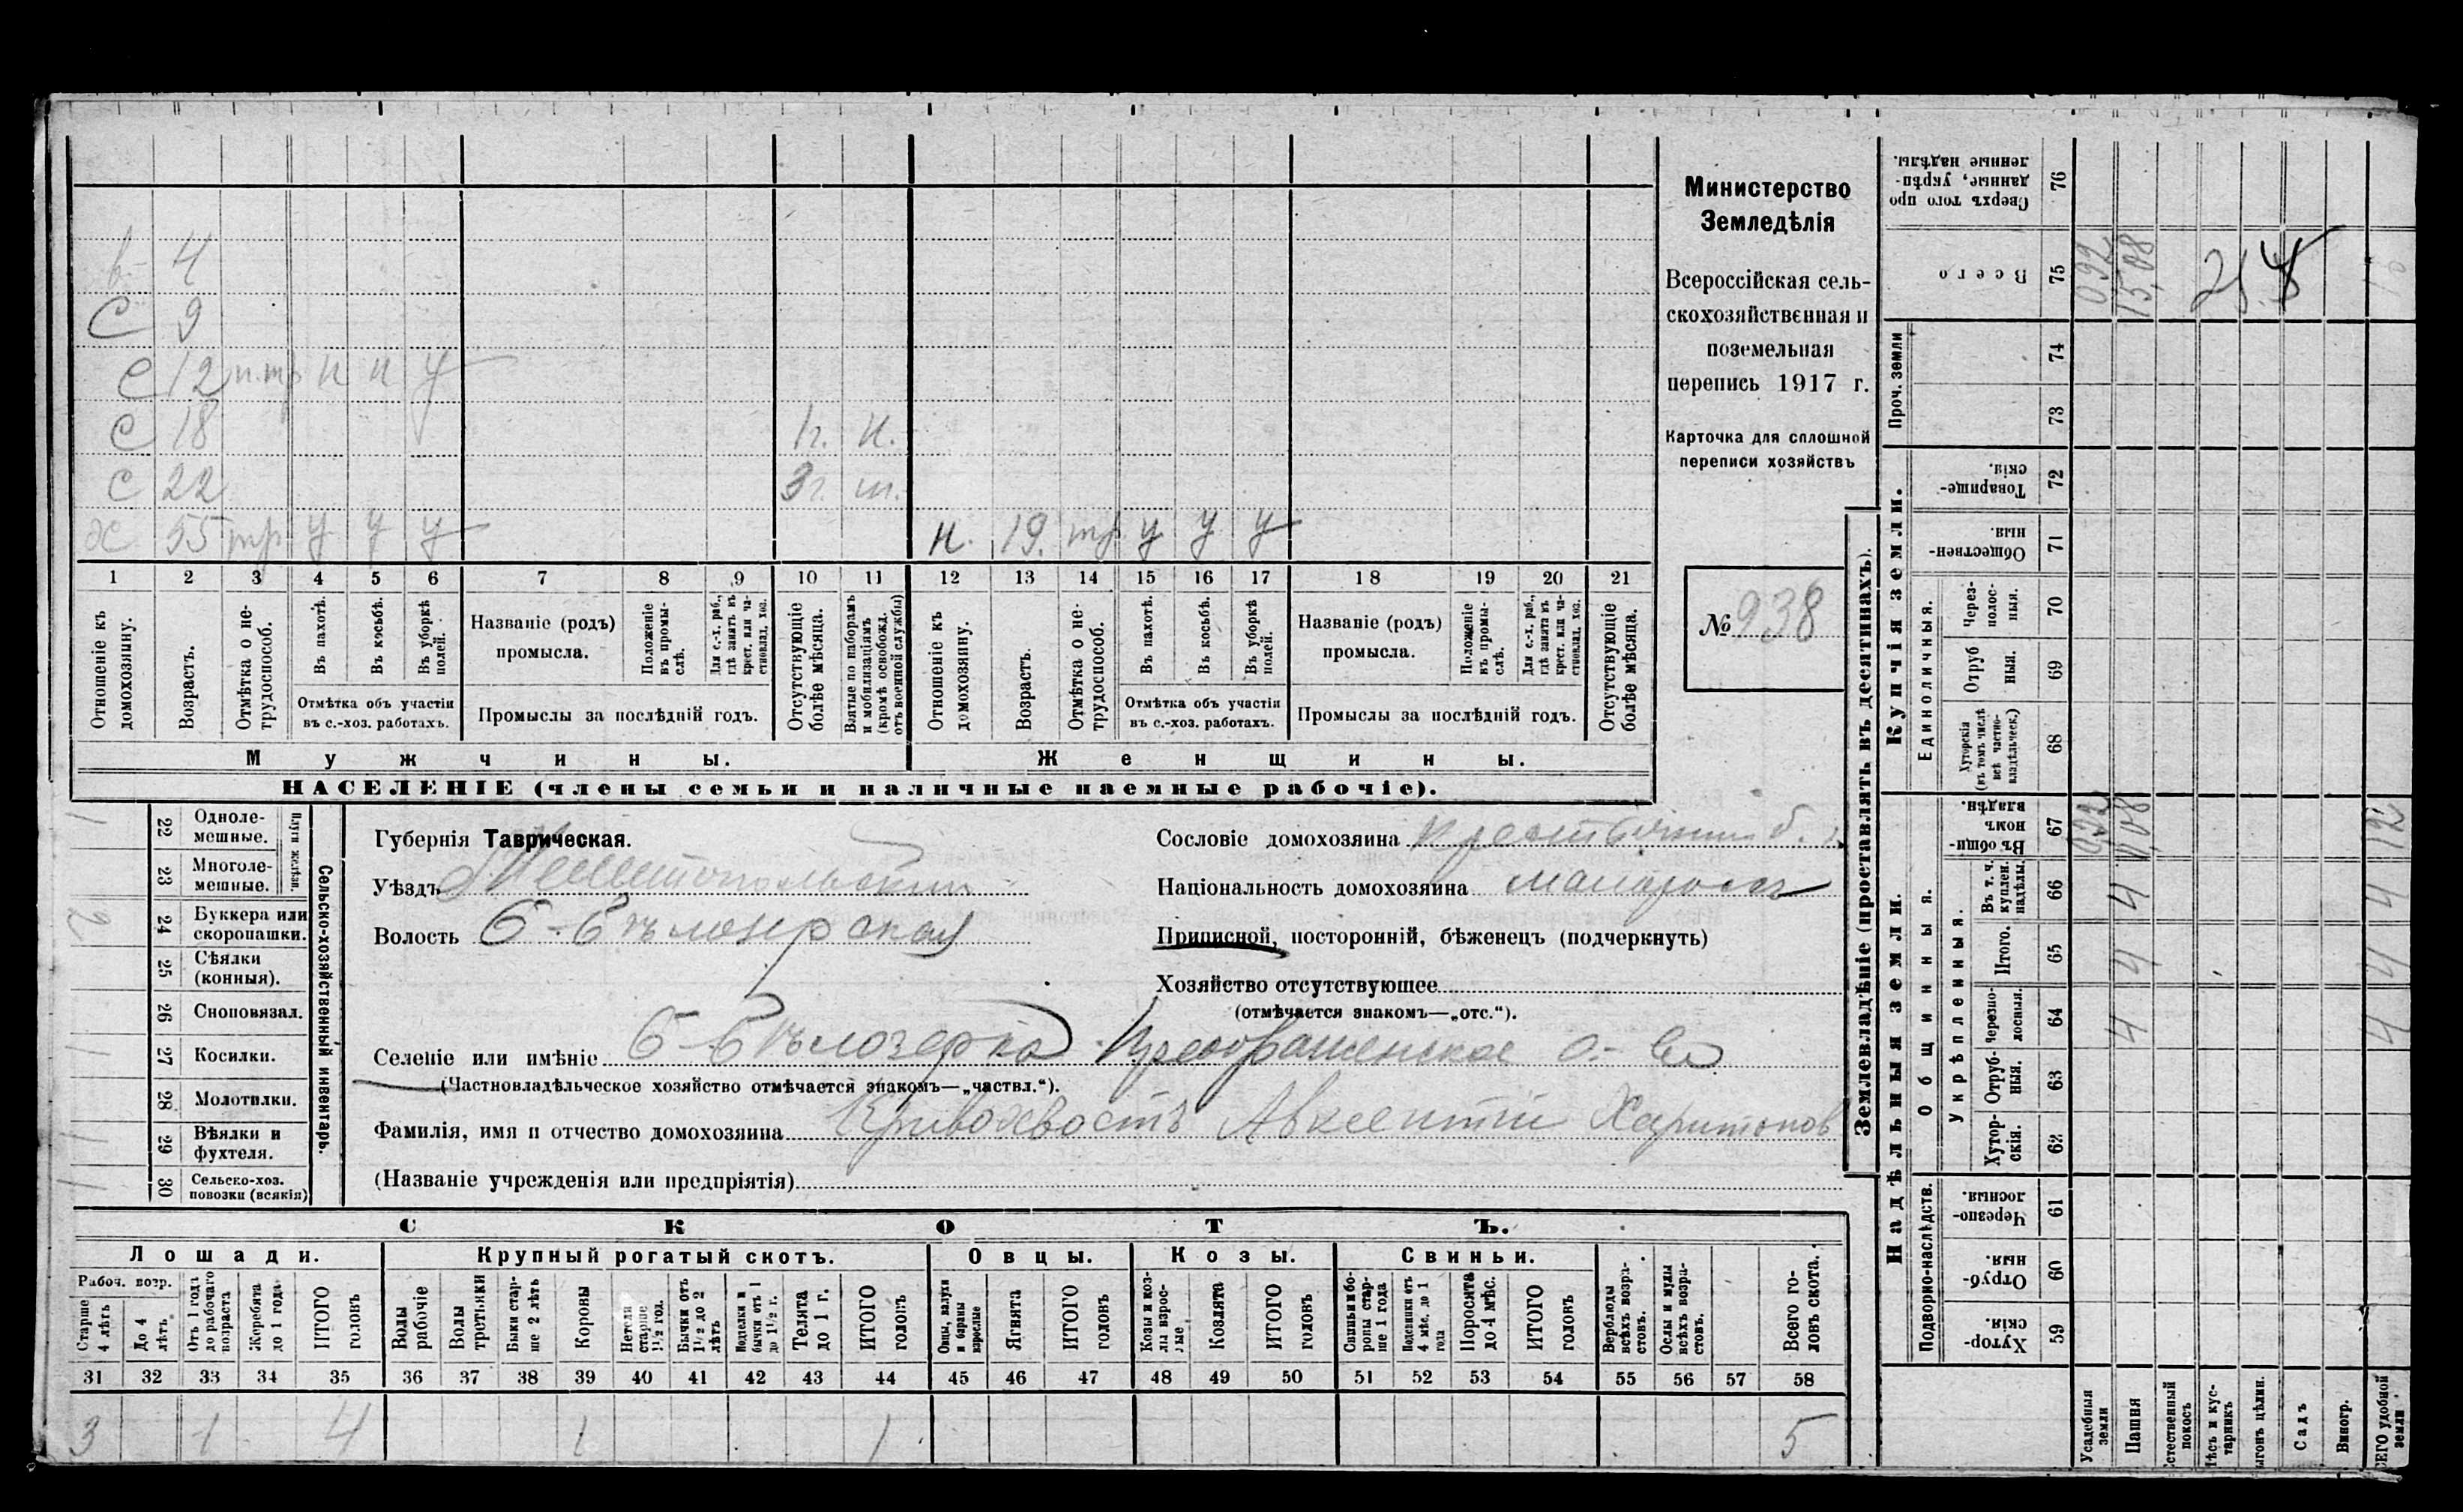 в 4
С 9
С 12 п.тр н н у
С 18 1г. н.
С 22 3г. т.
х 55 тр у у у н. 19. тр. у у у
1 2 3 4 5 6 7 8 9 10 11 12 13 14 15 16 17 18 19 20 21
Отношеніе къ домохозяину.
Возрастъ.
Отмѣтка о не-трудоспособ.
Въ пахотѣ.
Въ косьбѣ.
Въ уборкѣ полей.
Отмѣтка объ участіи въ с.-хоз. работахъ.
Названіе (родъ) промысла.
Положеніе въ промы-слѣ.
Для с.-х. раб., гдѣ занятъ въ крест. или ча-стновлад. хоз.
Промыслы за послѣдній годъ.
Отсутствующіе болѣе мѣсяца.
Взятые по наборамъ и мобилизаціямъ (кромѣ освобожд. отъ военной службы)
Отношеніе къ домохозяину.
Возрастъ.
Отмѣтка о не-трудоспособ.
Въ пахотѣ.
Въ косьбѣ.
Въ уборкѣ полей.
Отмѣтка объ участіи въ с.-хоз. работахъ.
Названіе (родъ) промысла.
Положеніе въ промы-слѣ.
Для с.-х. раб., гдѣ занята въ крест. или ча-стновлад. хоз.
Промыслы за послѣдній годъ.
Отсутствующіе болѣе мѣсяца.
Мужчины. Женщины.
НАСЕЛЕНІЕ (члены семьи и наличные наемные рабочіе).
Министерство
Земледѣлія
Всероссійская сель-
скохозяйственная и
поземельная
перепись 1917 г.
Карточка для сплошной
переписи хозяйствъ
№ 938
1 22 Одноле-мешные.
23 Многоле-мешные.
Плуги желѣзн.
2 24 Буккера или скоропашки.
25 Сѣялки (конныя).
26 Сноповязал.
1 27 Косилки.
28 Молотилки.
1 29 Вѣялки и фухтеля.
1 30 Сельско-хоз. повозки (всякія)
Сельско-хозяйственный инвентарь.
Губернія Таврическая.
Уѣздъ Мелитопольскій
Волость Б-Бѣлозерская
Селеніе или имѣніе Б-Бѣлозерка Преображенское о-во
(Частновладѣльческое хозяйство отмѣчается знакомъ—„частвл.“).
Фамилія, имя и отчество домохозяина Кривохвостъ Авксентій Харитонов
(Названіе учрежденія или предпріятія)
Сословіе домохозяина крестьянин б.
Національность домохозяина малоросъ
Приписной, посторонній, бѣженецъ (подчеркнуть)
Хозяйство отсутствующее
(отмѣчается знакомъ—„отс.“).
СКОТЪ.
Лошади. Крупный рогатый скотъ. Овцы. Козы. Свиньи.
Рабоч. возр.
Старше 4 лѣтъ
До 4 лѣтъ
Отъ 1 года до рабочаго возраста
Жеребята до 1 года
ИТОГО головъ
Волы рабочіе
Волы третьяки
Быки стар-ше 2 лѣтъ
Коровы
Нетели старше 1½ год.
Бычки отъ 1½ до 2 лѣтъ
Подтелки и бычки отъ 1 до 1½ г.
Телята до 1 г.
ИТОГО головъ
Овцы, валухи и бараны взрослые
Ягнята
ИТОГО головъ
Козы и коз-лы взрос-лые
Козлята
ИТОГО головъ
Свиньи и бо-ровы стар-ше 1 года
Подсвинки отъ 4 мѣс. до 1 года
Поросята до 4 мѣс.
ИТОГО головъ
Верблюды всѣхъ возра-стовъ.
Ослы и мулы всѣхъ возра-стовъ.
Всего го-ловъ скота.
31 32 33 34 35 36 37 38 39 40 41 42 43 44 45 46 47 48 49 50 51 52 53 54 55 56 57 58
3 1 4 1 1 5
Землевладѣніе (проставлять въ десятинахъ).
Надѣльныя земли.
Купчія земли.
Проч. земли
Подворно-наслѣдств.
Общинныя.
Укрѣпленныя.
Единоличныя.
Сверхъ того про-данные, укрѣп-ленные надѣлы. 76
Всего 75 0,92 15,08
74
73
Товарище-скія. 72
Обществен-ныя. 71
Через-полос-ныя. 70
Отруб-ныя. 69
Хуторскія (въ томъ числѣ всѣ частно-владѣльческ.) 68
Въ общи-номъ владѣн. 67 0,92 11,08 12
Въ т. ч. куплен. надѣлы. 66 4 4
Итого. 65 4 4
Черезпо-лосныя. 64 4 4
Отруб-ныя. 63
Хутор-скія. 62
Черезпо-лосныя. 61
Отруб-ныя. 60
Хутор-скія. 59
Усадебныя земли
Пашня
Естественный покосъ
Лѣсъ и кус-тарникъ
Выгонъ цѣлин.
Садъ
Виногр.
ВСЕГО удобной земли